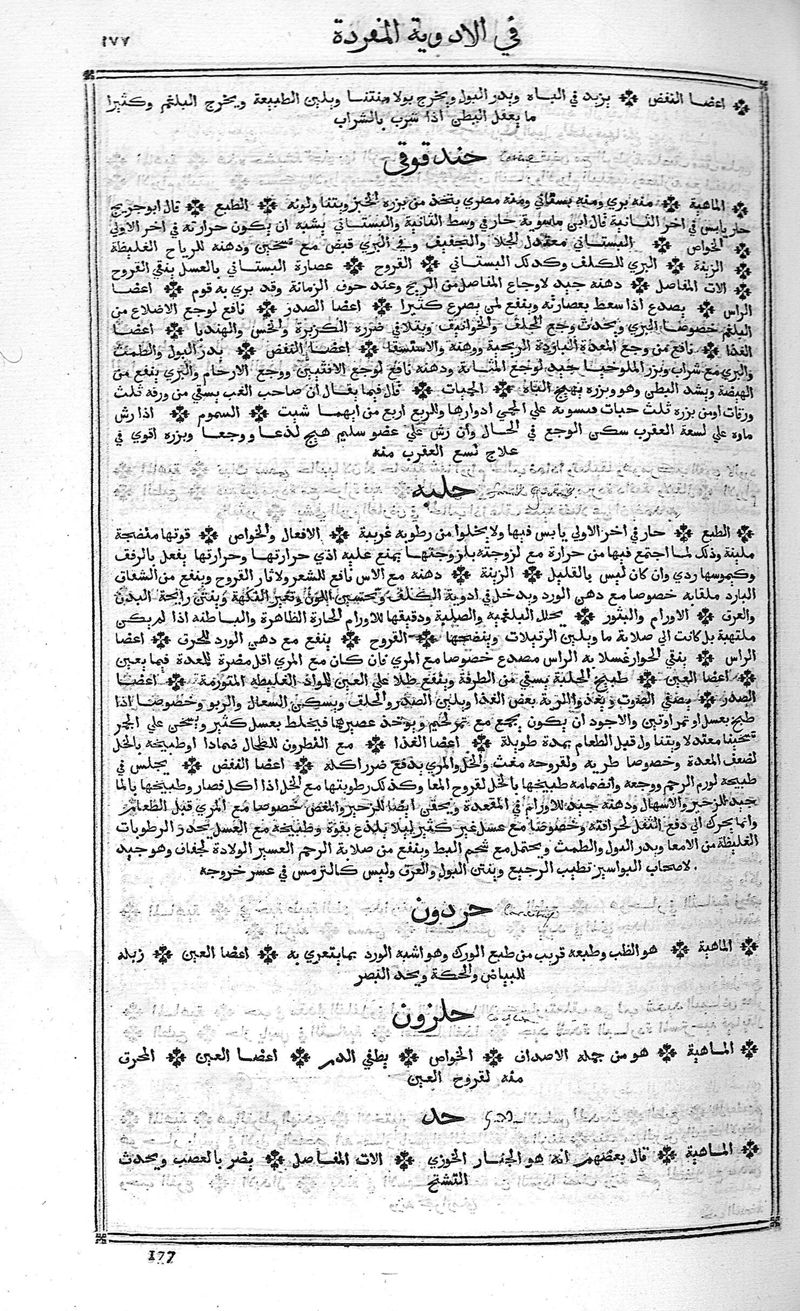 ١٧٧
في الادوية المفردة
اعضا النفض ❊ يزيد في الباه ويدر البول ويخرج بولا منتنا ويلين الطبيعة ويخرج البلغم وكثيرا
ما يعقل البطن اذا شرب بالشراب
حندقوقي
الماهية ❊ منه بري ومنه بستاني ومنه مصري يتخذ من بزره الخبز وبتنا ولونه ❊ الطبع ❊ قال ابو جريج
حار يابس في اخر الثانية قال ابن ماسويه حار في وسط الثانية والبستاني يشبه ان يكون حرارته في اخر الاولي
❊ الخواص ❊ البستاني معتدل الجلا والتجفيف وفي البري قبض مع تسخين ودهنه للرياح الغليظة
❊ الزينة ❊ البري للكلف وكذلك البستاني ❊ القروح ❊ عصارة البستاني بالعسل ينقي القروح
❊ الات المفاصل ❊ دهنه جيد لاوجاع المفاصل من الريح وعند خوف الزمانة وقد بري به قوم ❊ اعضا
الراس ❊ يصدع اذا سعط بعصارته وينفع لمن يصرع كثيرا ❊ اعضا الصدر ❊ نافع لوجع الاضلاع من
البلغم خصوصا البري ويحدث وجع الحلق والخوانيف ويتلافي ضرره الكزبرة والخس والهنديا ❊ اعضا
الغذا ❊ نافع من وجع المعدة الباردة الريحية ودهنه والاستسقا ❊ اعضا النفض ❊ يدر البول والطمث
والبري مع شراب وبزر الملوخيا جيد لوجع المثانة ودهنه نافع لوجع الانثيين ووجع الارحام والبري ينفع من
الهيضة ويشد البطن وهو وبزره يهيج الباه ❊ الحميات ❊ قال فيما يقال ان صاحب الغب يسقي من ورقه ثلث
ورقات او من بزره ثلث حبات فيسوبه علي الحمي ادوارها والربع اربع من ايهما شيت ❊ السموم ❊ اذا رش
ماوه علي لسعة العقرب سكن الوجع في الحال وان رش علي عضو سليم هيج لذعا ووجعا وبزره اقوي في
علاج لسع العقرب منه
حلبه
❊ الطبع ❊ حار في اخر الاولي يابس فيها ولا يخلوا من رطوبة غريبة ❊ الافعال والخواص ❊ قوتها منضجة
ملينة وذلك لما اجتمع فيها من حرارة مع لزوجته بلزوجتها يمنع عليه اذي حرارتها وحرارتها يفعل بالرفق
وكيموسها ردي وان كان ليس بالقليل ❊ الزينة ❊ دهنه مع الاس نافع للشعر ولاثار القروح وينفع من الشقاق
البارد ملقابه خصوصا مع دهن الورد ويدخل في ادوية الكلف وتحسين اللون وتغير النكهة وينتن رايحة البدن
والعرق ❊ الاورام والبثور ❊ يحلل البلغمية والصلبة ودقيقها للاورام الحارة الظاهرة والباطنه اذا لم يكن
ملتهبة بل كانت الي صلابة ما ويلين الدبيلات وينضجها ❊ القروح ❊ ينفع مع دهن الورد للحرق ❊ اعضا
الراس ❊ ينقي الحوار غسلا به الراس مصدع خصوصا مع المري فان كان مع المري اقل مضرة للمعدة فيما يعين
❊ اعضا العين ❊ طبيخ الحلبة يسقي من الطرفة وينفع طلا علي العين للمواد الغليظة المتورمة ❊ اعضا
الصدر ❊ يصفي الصوت ويغذو الرية بعض الغذا ويلين الصدر والحلق ويسكن السعال والربو وخصوصا اذا
طبخ بعسل او تمر او تين والاجود ان يكون يجمع مع تمر لحيم ويوخذ عصيرهما فيخلط بعسل كثير ويسخن علي الجمر
تسخينا معتدلا ويتنا ول قبل الطعام بمدة طويلة ❊ اعضا الغذا ❊ مع النطرون للطحال ضمادا او طبيخه بالخل
لضعف المعدة وخصوصا طريه ولقروحه مغث والخل والمري يدفع ضرر اكله ❊ اعضا النفض ❊ يجلس في
طبيخه لورم الرحم ووجعه وانضمامه طبيخها بالخل لقروح المعا وكذلك رطوبتها مع الخل اذا اكل فصار وطبيخها بالما
جيد للزحير والاسهال ودهنه جيد للاورام في المقعدة ويحقن ايضا للزحير والمغص خصوصا مع المري قبل الطعام
وانما يحرك الي دفع الثفل لحرافته وخصوصا مع عسل غير كثير ليلا يلذع بقوة وطبيخه مع العسل يحدر الرطوبات
الغليظة من الامعا ويدر البول والطمث ويحتمل مع شحم البط وينفع من صلابة الرحم العسير الولادة لجفاف وهو جيد
لاصحاب البواسير تطيب الرجيع وينتن البول والعرق وليس كالترمس في عسر خروجه
حردون
❊ الماهية ❊ هو الظب وطبعه قريب من طبع الورك وهو اشبه الورد بما يتعري به ❊ اعضا العين ❊ زبله
للبياض والحكة ويحد البصر
حلزون
❊ الماهية ❊ هو من جمله الاصداف ❊ الخواص ❊ يطفي الدم ❊ اعضا العين ❊ المحرق
منه لقروح العين
حد
❊ الماهية ❊ قال بعضهم انه هو الجنار الخوزي ❊ الات المفاصل ❊ يضر بالعصب ويحدث
التشنج
177